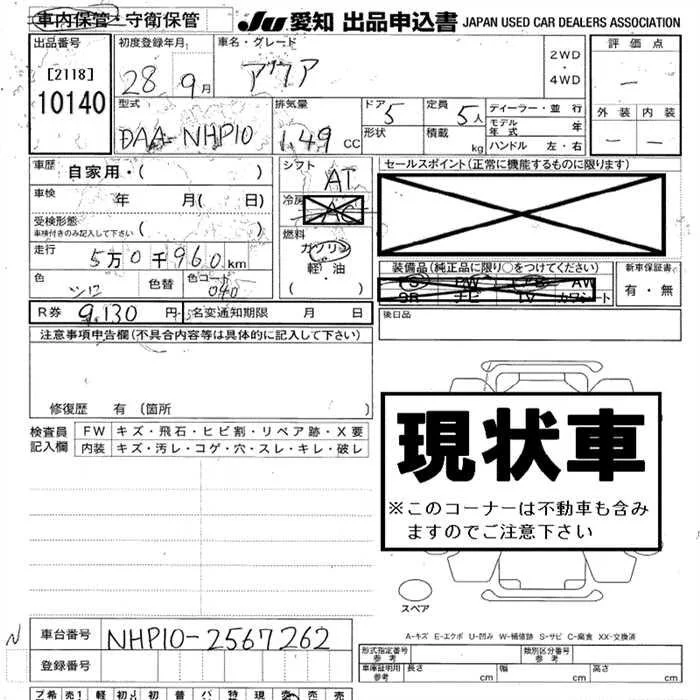 車内保管・守衛保管
JU 愛知 出品申込書 JAPAN USED CAR DEALERS ASSOCIATION
出品番号
[2118]
10140
初度登録年月
28年9月
車名・グレード
アクア
2WD
・
4WD
評価点
—
外装 内装
— —
型式
DAA-NHP10
排気量
1.49 CC
ドア 5
形状
定員 5人
積載 kg
ディーラー・並行
モデル年式 年
ハンドル 左・右
車歴 自家用・( )
車検 年 月( 日)
受検形態
車検付きのみ記入して下さい ( )
走行 5万0千960km
色 シロ 色替 色コード 040
シフト
AT
冷房
AC
燃料
ガソリン
軽・油
( ・ )
セールスポイント(正常に機能するものに限ります)
装備品(純正品に限り○をつけてください)
S PW AW
SR ナビ TV カワシート
新車保証書
有・無
R券 9,130円 名変通知期限 月 日
後日品
注意事項申告欄(不具合内容等は具体的に記入して下さい)
修復歴 有(箇所 )
検査員記入欄
FW キズ・飛石・ヒビ割・リペア跡・X要
内装 キズ・汚レ・コゲ・穴・スレ・キレ・破レ
現状車
※このコーナーは不動車も含み
ますのでご注意下さい
スペア
A-キズ E-エクボ U-凹み W-補修跡 S-サビ C-腐食 XX-交換済
N
車台番号 NHP10-2567262
登録番号
形式指定番号
参考
類別区分番号
参考
車庫証明用
参考
長さ cm 幅 cm 高さ cm